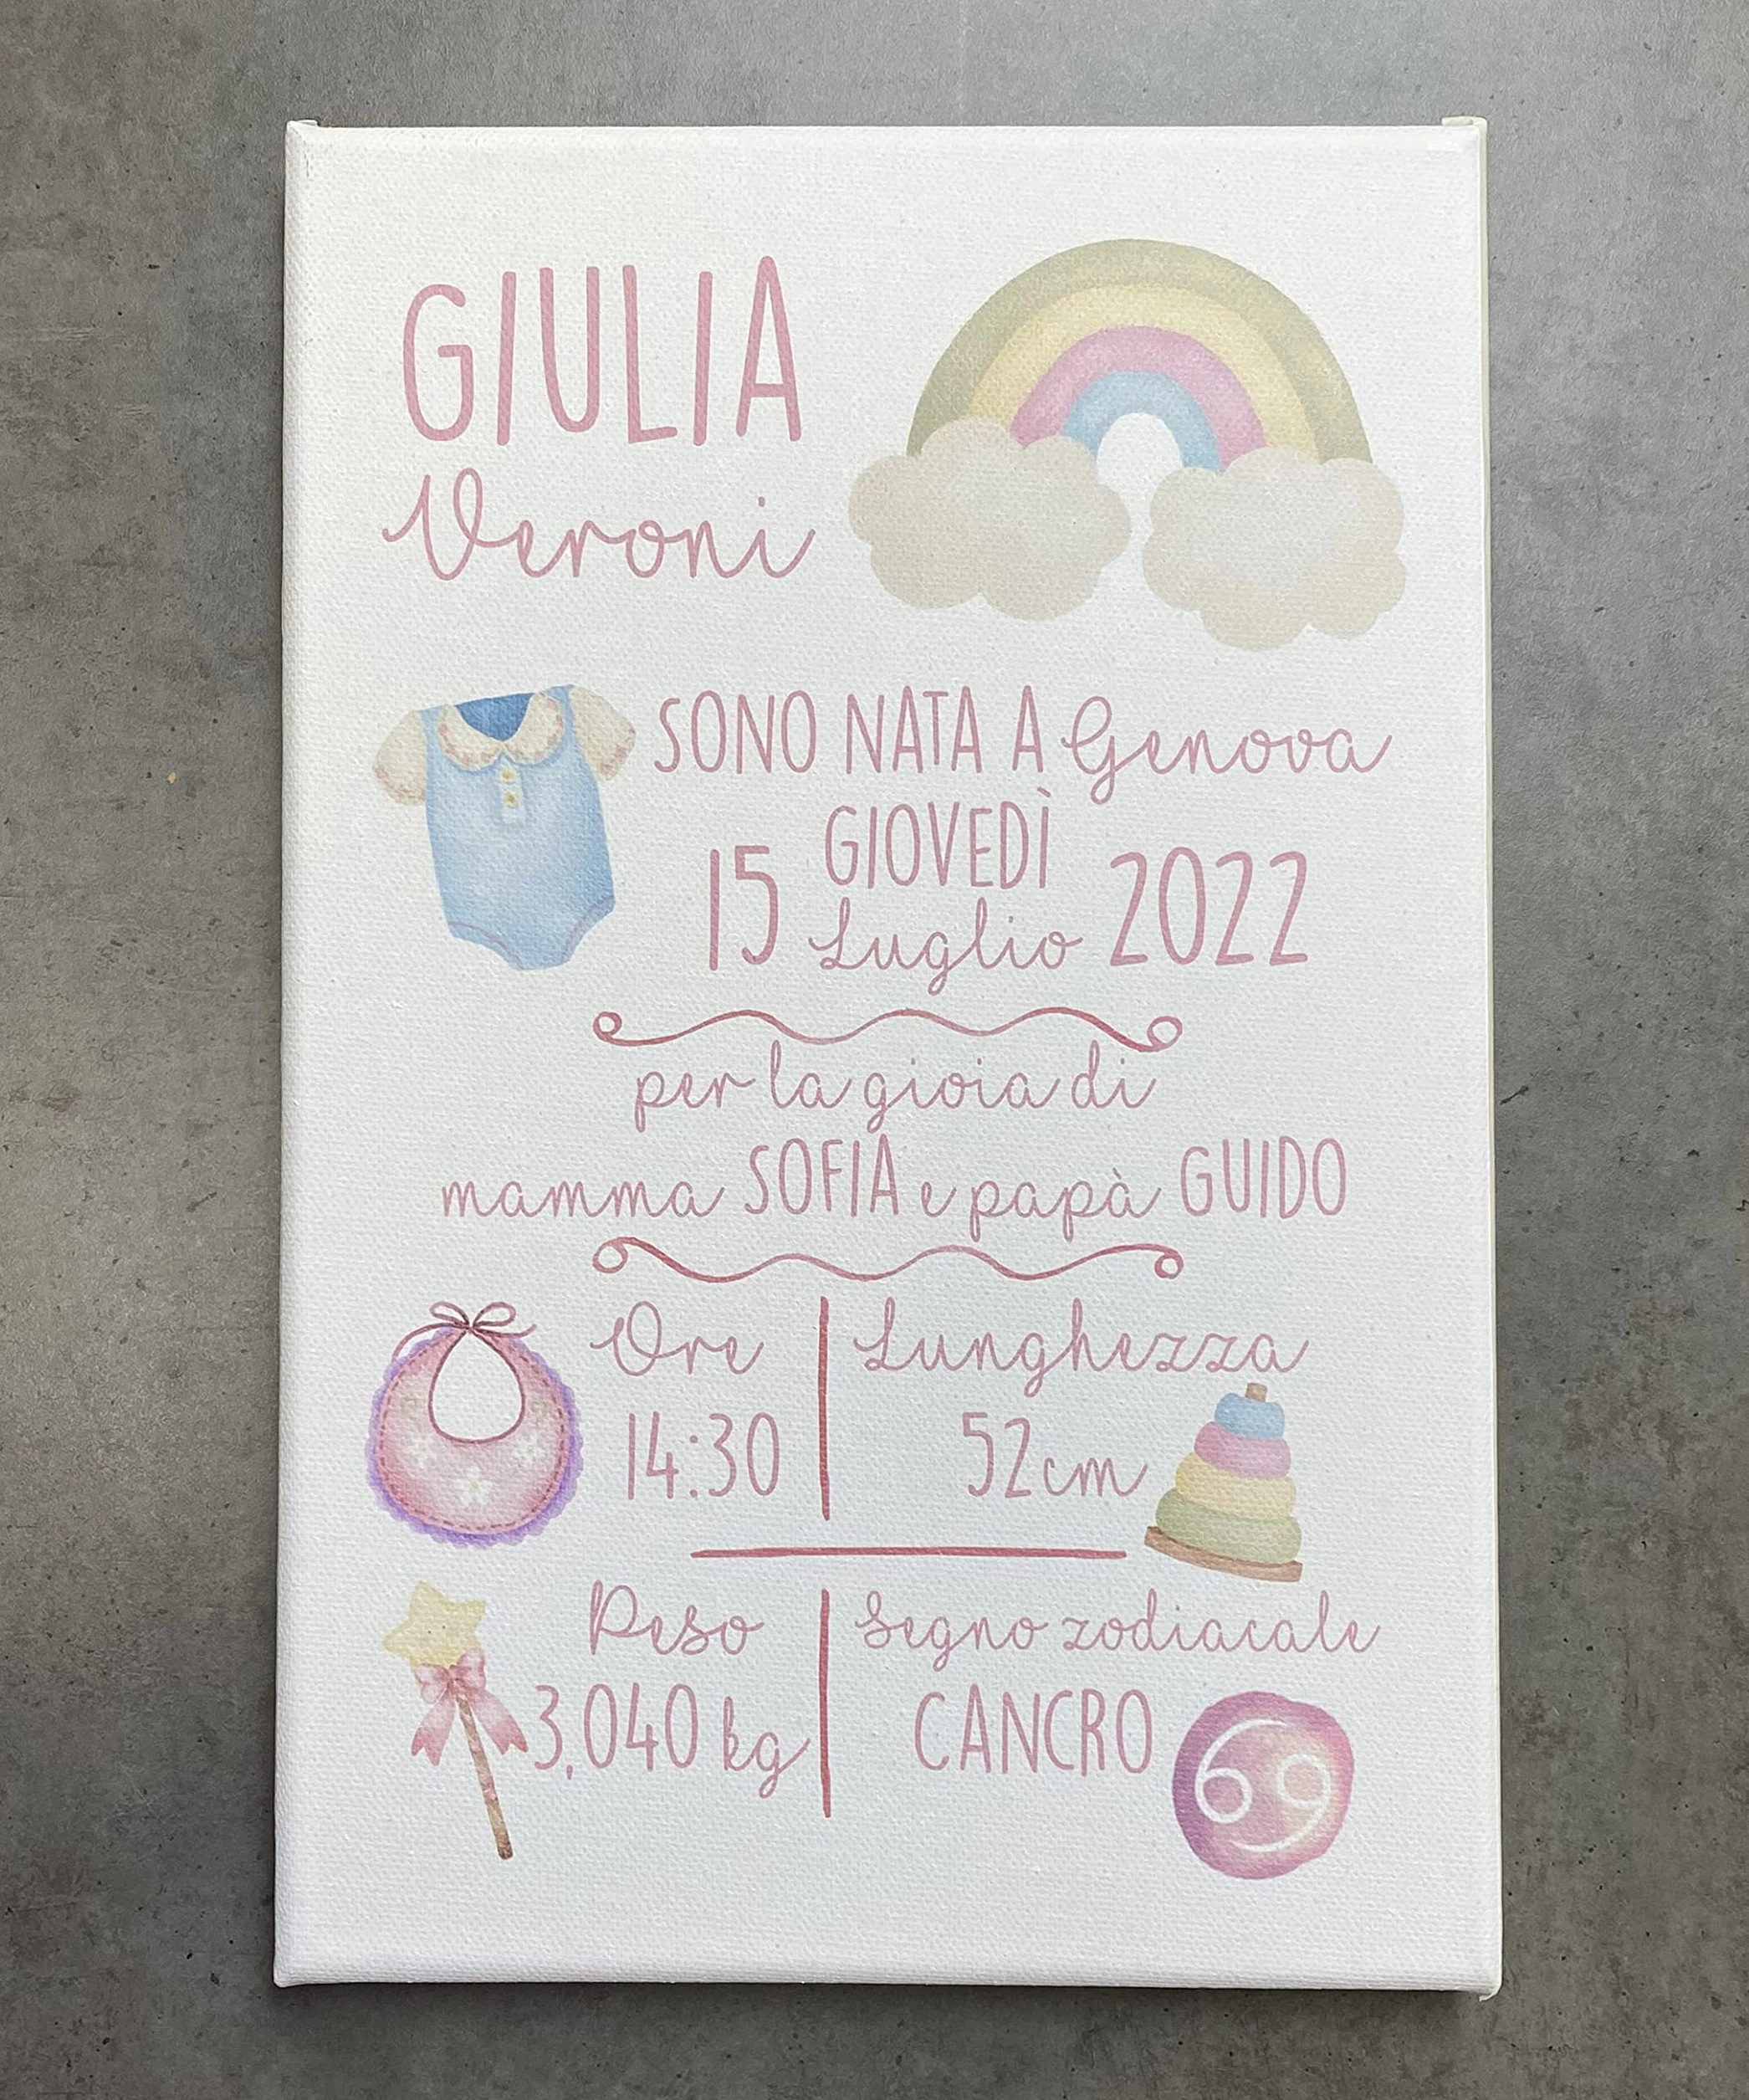 GIULIA
Veroni
SONO NATA A Genova
GIOVEDÌ
15 Luglio 2022
per la gioia di
mamma SOFIA e papà GUIDO
Ore
14:30
Lunghezza
52cm
Peso
3,040 kg
Segno zodiacale
CANCRO